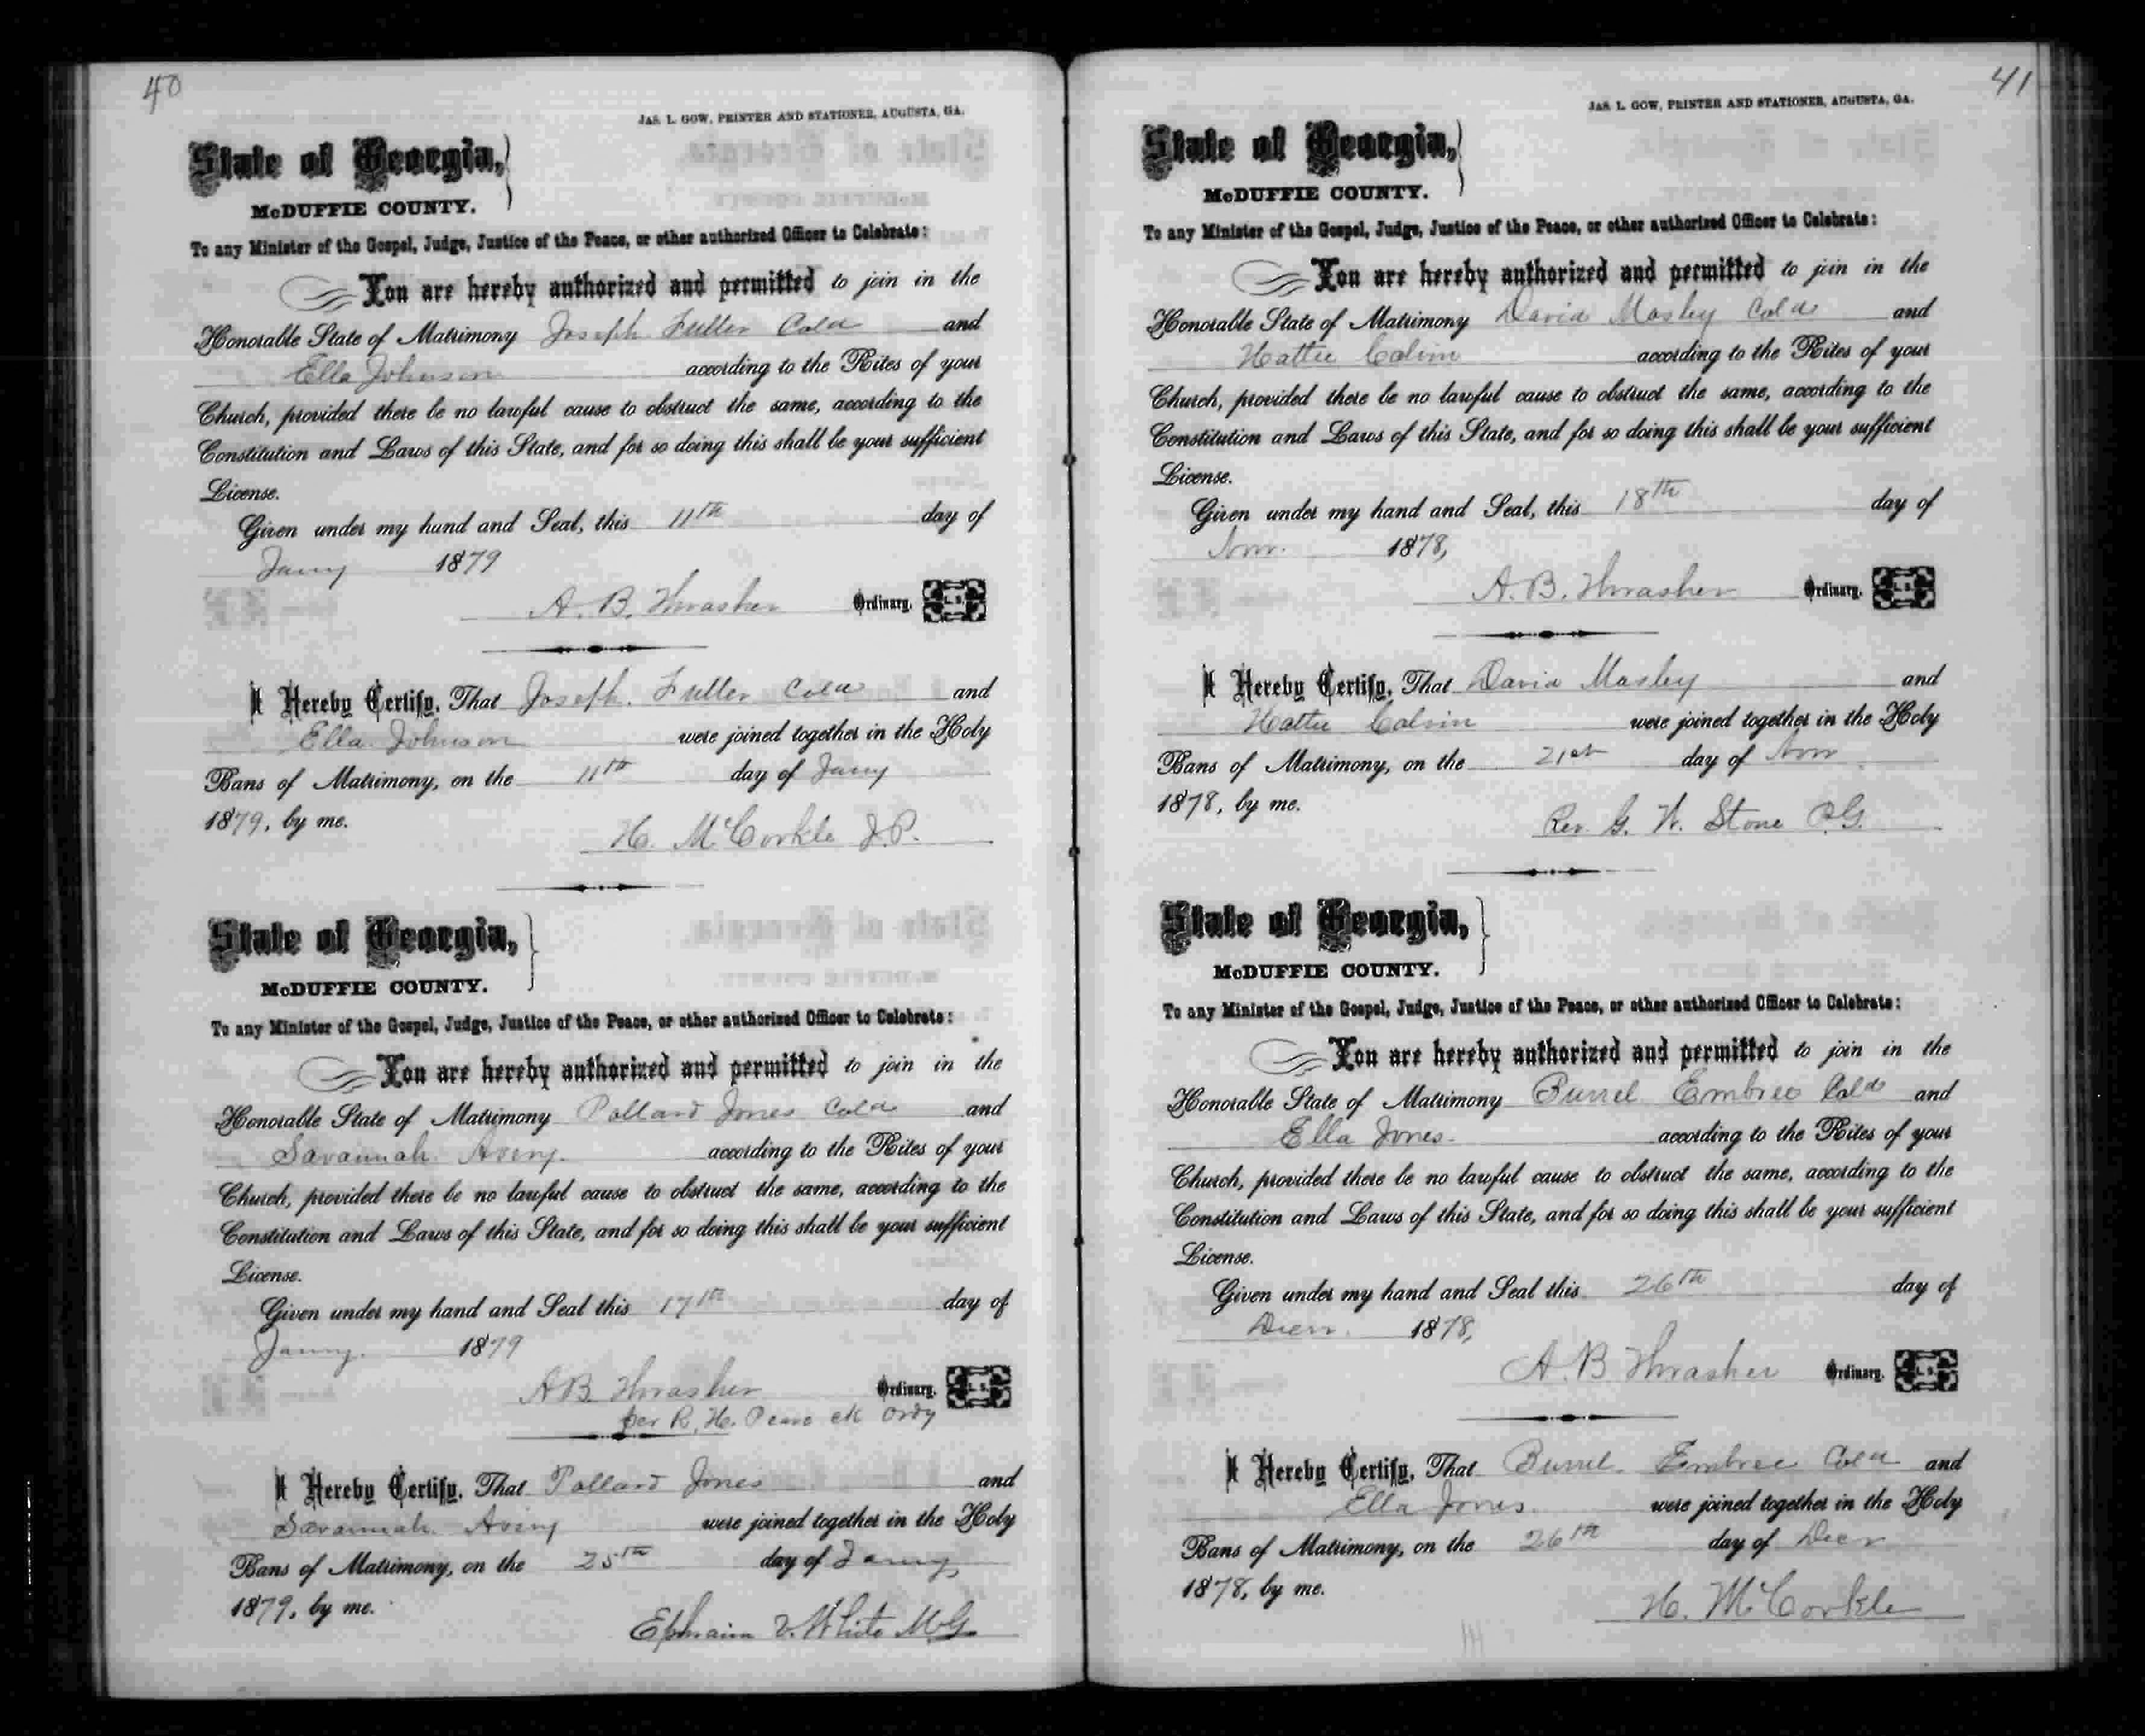 40
JAS. L. GOW, PRINTER AND STATIONER, AUGUSTA, GA.
State of Georgia,
McDUFFIE COUNTY.
To any Minister of the Gospel, Judge, Justice of the Peace, or other authorized Officer to Celebrate:
You are hereby authorized and permitted to join in the
Honorable State of Matrimony Joseph Fuller Cold and
Ella Johnson according to the Rites of your
Church, provided there be no lawful cause to obstruct the same, according to the
Constitution and Laws of this State, and for so doing this shall be your sufficient
License.
Given under my hand and Seal, this 11th day of
Jany 1879
A. B. Thrasher Ordinary. L.S.
I Hereby Certify, That Joseph. Fuller Cold and
Ella Johnson were joined together in the Holy
Bans of Matrimony, on the 11th day of Jany
1879, by me.
H. McCorkle J.P.
State of Georgia,
McDUFFIE COUNTY.
To any Minister of the Gospel, Judge, Justice of the Peace, or other authorized Officer to Celebrate:
You are hereby authorized and permitted to join in the
Honorable State of Matrimony Pollard Jones Cold and
Savannah Avery. according to the Rites of your
Church, provided there be no lawful cause to obstruct the same, according to the
Constitution and Laws of this State, and for so doing this shall be your sufficient
License.
Given under my hand and Seal this 17th day of
Janny. 1879
A B. Thrasher Ordinary. L.S.
per R. H. Pearce clk Ordy
I Hereby Certify, That Pollard Jones and
Savannah Avery were joined together in the Holy
Bans of Matrimony, on the 25th day of Jany
1879, by me.
Ephraim V. White M.G.
41
JAS. L. GOW, PRINTER AND STATIONER, AUGUSTA, GA.
State of Georgia,
McDUFFIE COUNTY.
To any Minister of the Gospel, Judge, Justice of the Peace, or other authorized Officer to Celebrate:
You are hereby authorized and permitted to join in the
Honorable State of Matrimony David Mosley Cold and
Hattie Calvin according to the Rites of your
Church, provided there be no lawful cause to obstruct the same, according to the
Constitution and Laws of this State, and for so doing this shall be your sufficient
License.
Given under my hand and Seal, this 18th day of
Nov. 1878,
A. B. Thrasher Ordinary. L.S.
I Hereby Certify, That David Mosley and
Hattie Calvin were joined together in the Holy
Bans of Matrimony, on the 21st day of Nov
1878, by me.
Rev. G. W. Stone P.G.
State of Georgia,
McDUFFIE COUNTY.
To any Minister of the Gospel, Judge, Justice of the Peace, or other authorized Officer to Celebrate:
You are hereby authorized and permitted to join in the
Honorable State of Matrimony Burrel Embree Cold and
Ella Jones. according to the Rites of your
Church, provided there be no lawful cause to obstruct the same, according to the
Constitution and Laws of this State, and for so doing this shall be your sufficient
License.
Given under my hand and Seal this 26th day of
Decr. 1878,
A. B Thrasher Ordinary. L.S.
I Hereby Certify, That Burrel. Embree Cold and
Ella Jones. were joined together in the Holy
Bans of Matrimony, on the 26th day of Decr
1878, by me.
H. McCorkle